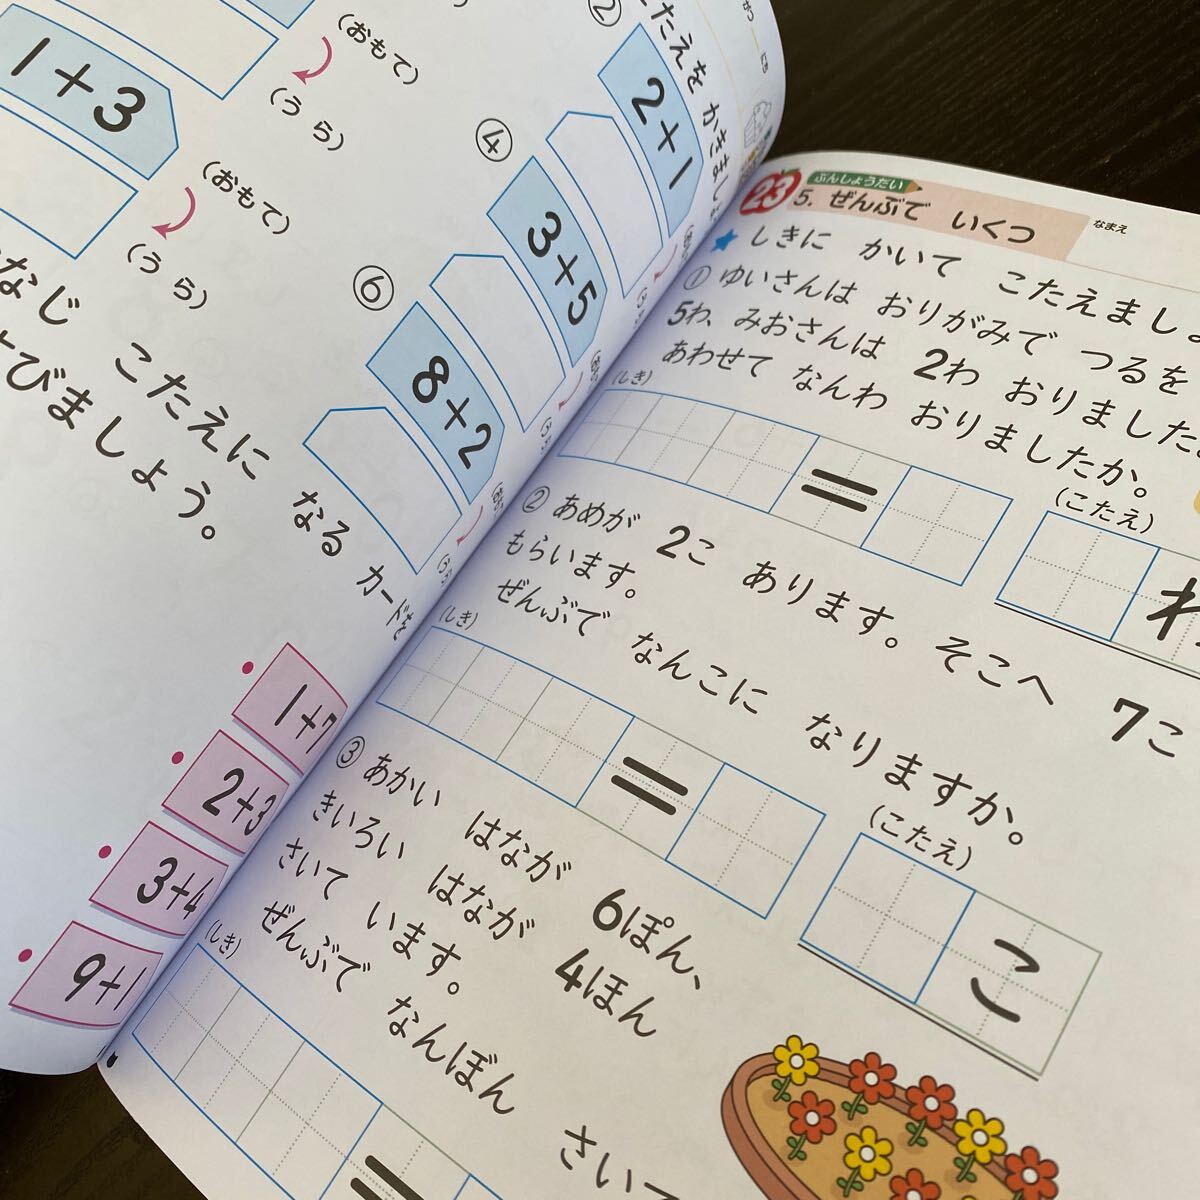 ②
たえを かきましょ
1+3
(おもて)
(うら)
2+1
④
3+5
(おもて)
(うら)
⑥
8+2
なじ こたえに なる カードを
びましょう。
1+7
2+3
3+4
9+1
23
ぶんしょうだい
5. ぜんぶで いくつ
なまえ
★ しきに かいて こたえましょ
① ゆいさんは おりがみで つるを
5わ、みおさんは 2わ おりました
あわせて なんわ おりましたか。
(しき)
=
(こたえ)
わ
② あめが 2こ あります。そこへ 7こ
もらいます。
ぜんぶで なんこに なりますか。
(しき)
=
(こたえ)
こ
③ あかい はなが 6ぽん、
きいろい はなが 4ほん
さいて います。
ぜんぶで なんぼん さいて
(しき)
=